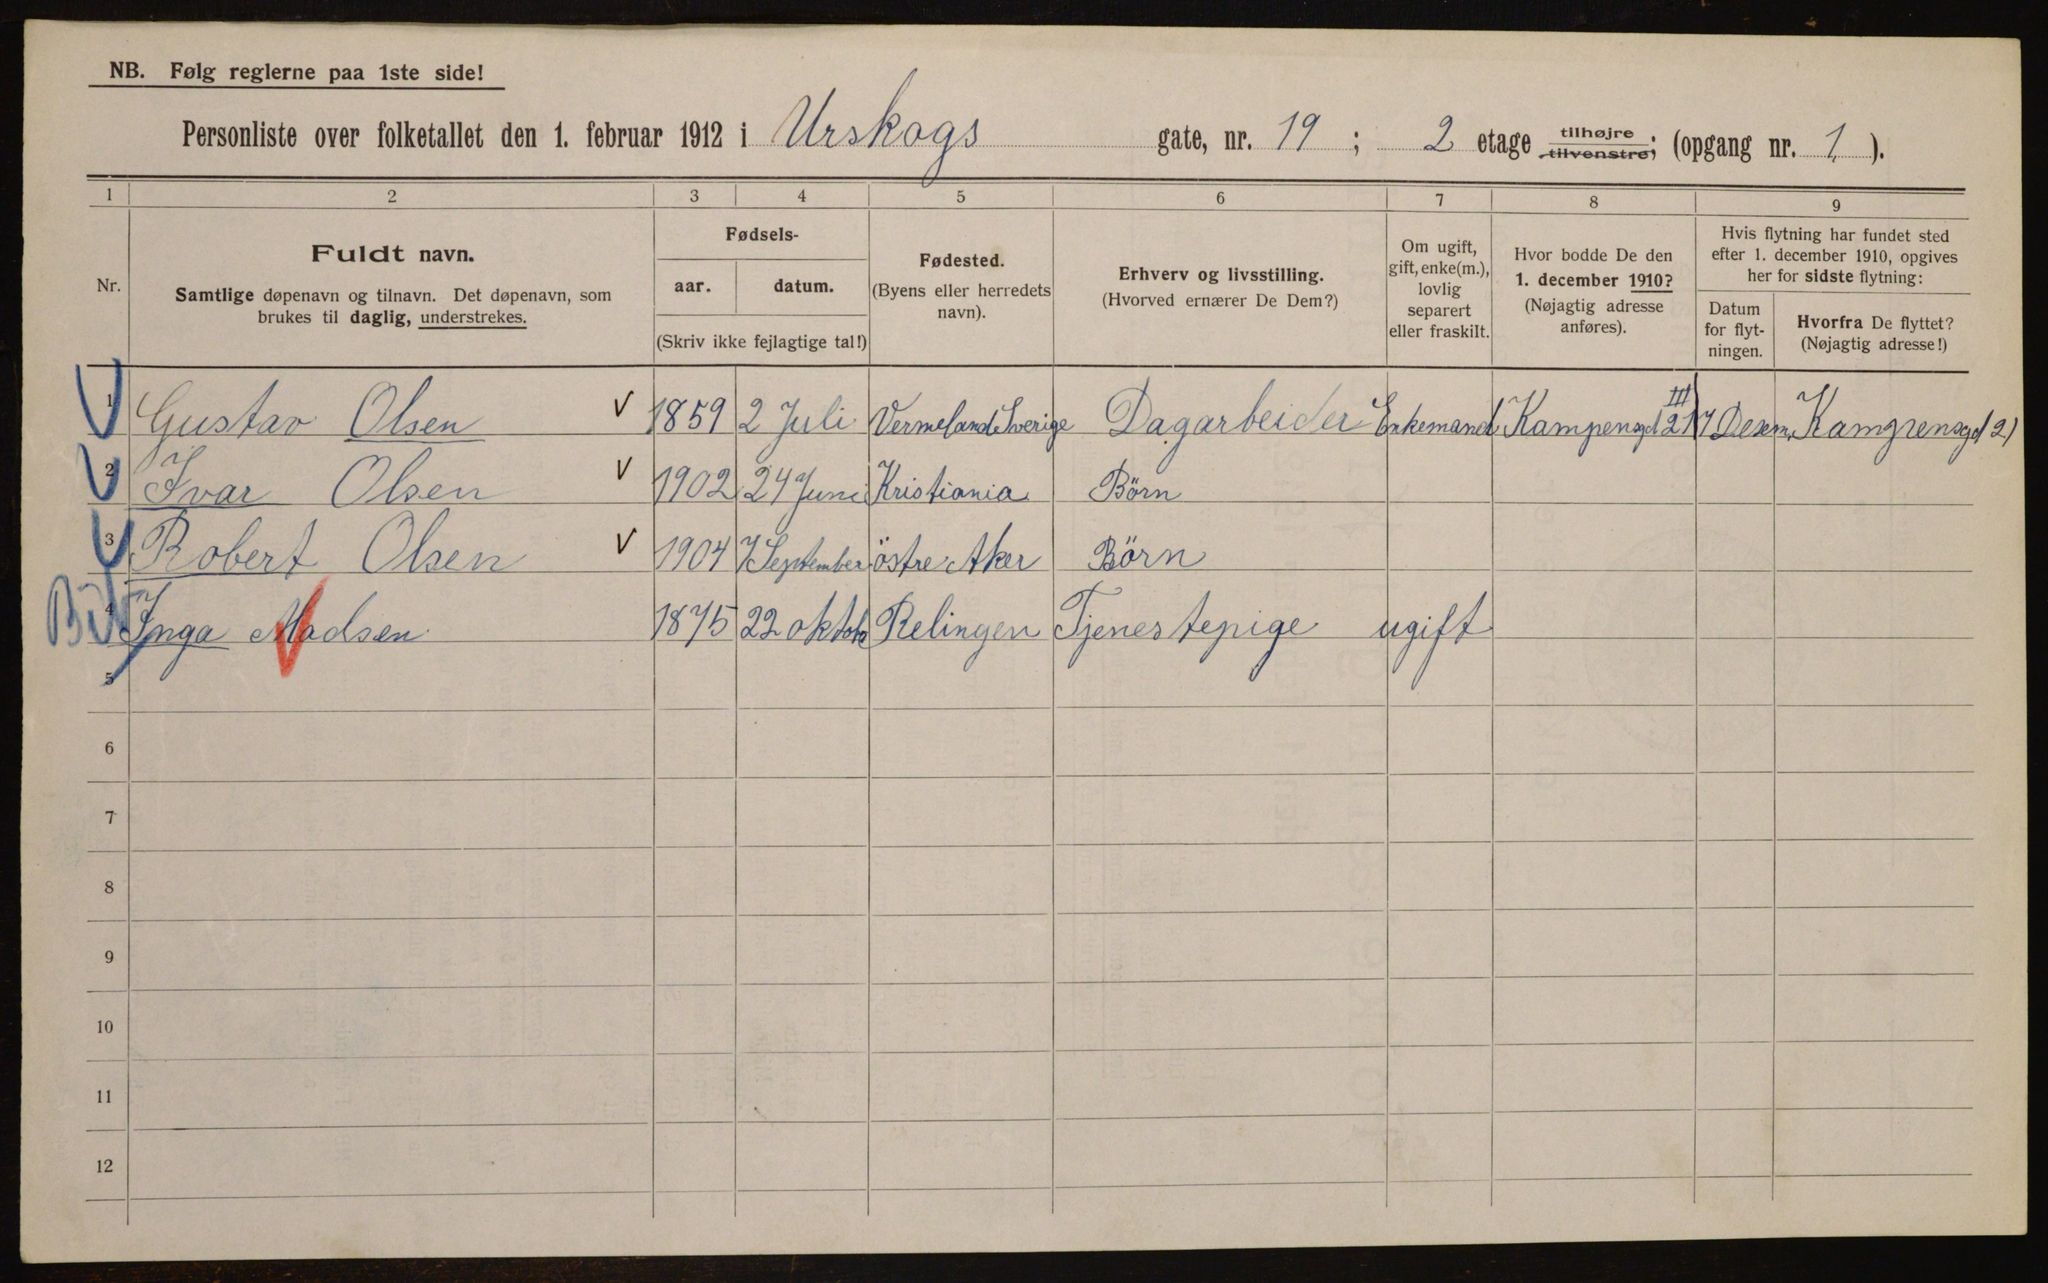 NB. Følg reglerne paa 1ste side!
Personliste over folketallet den 1. februar 1912 i Urskogs gate, nr. 19 ; 2 etage tilhøjre tilvenstre; (opgang nr. 1 ).
1 2 3 4 5 6 7 8 9
Nr.
Fuldt navn.
Samtlige døpenavn og tilnavn. Det døpenavn, som
brukes til daglig, understrekes.
Fødsels-
aar. datum.
(Skriv ikke fejlagtige tal!)
Fødested.
(Byens eller herredets
navn).
Erhverv og livsstilling.
(Hvorved ernærer De Dem?)
Om ugift,
gift, enke(m.),
lovlig
separert
eller fraskilt.
Hvor bodde De den
1. december 1910?
(Nøjagtig adresse
anføres).
Hvis flytning har fundet sted
efter 1. december 1910, opgives
her for sidste flytning:
Datum
for flyt-
ningen.
Hvorfra De flyttet?
(Nøjagtig adresse!)
1 Gustav Olsen V 1859 2 Juli Vermeland Sverige Dagarbeider Enkemand Kampensgd 21 III 7 Desem, Kampensgd 21
2 Ivar Olsen V 1902 24 Juni Kristiania Börn
3 Robert Olsen V 1904 7 September östre Aker Börn
4 Inga Madsen 1875 22 oktob Relingen Tjenestepige ugift
5
6
7
8
9
10
11
12